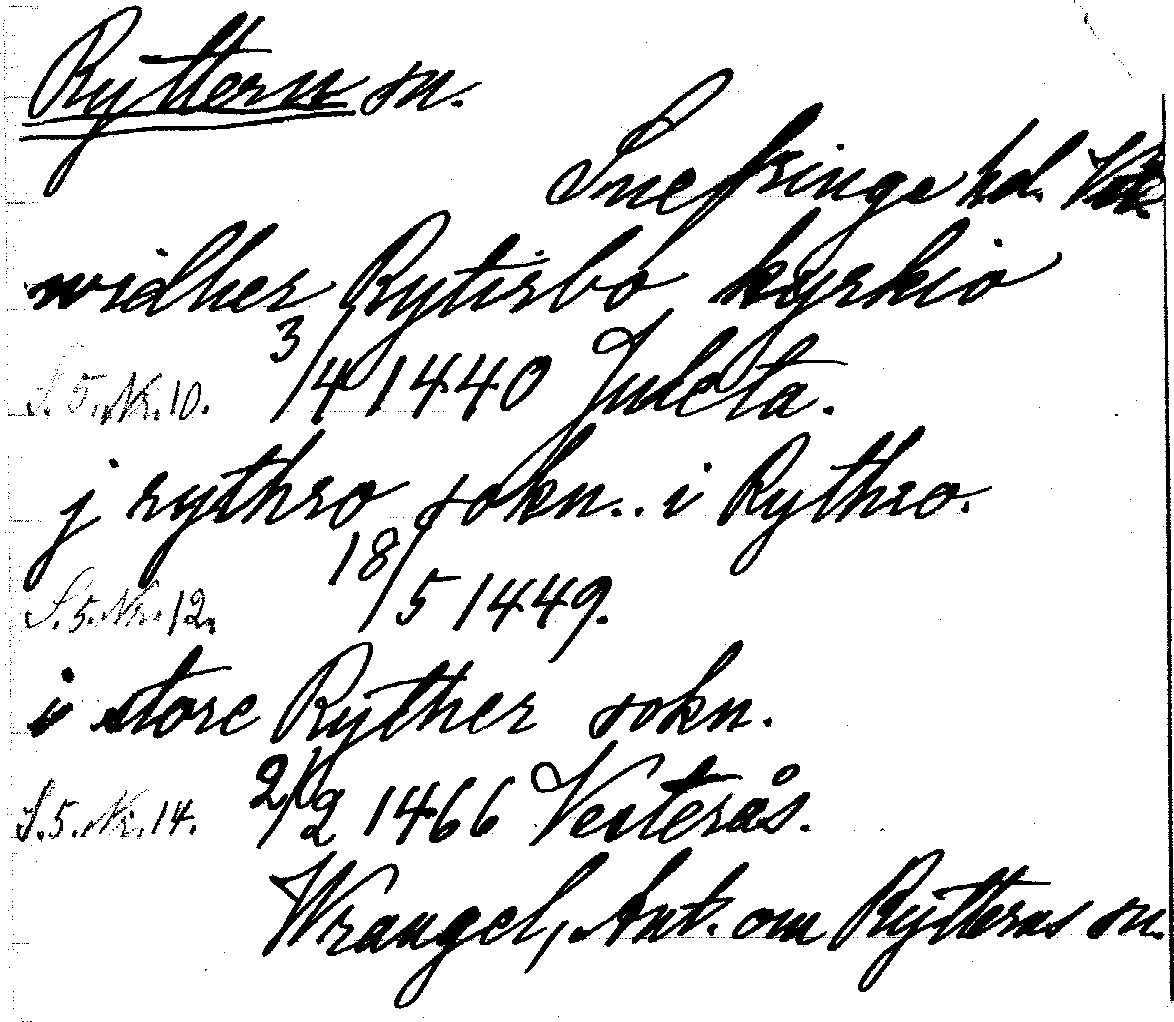 Ryttern sn.
Snefringe hd.
widher Rytirbo kyrkio
S. 5. Nr. 10. 3/4 1440 Juleta.
j rythro sokn.. i Rythro.
S. 5. Nr. 12. 18/5 1449.
i store Ryther sokn.
S. 5. Nr. 14. 1466 Vesterås.
Wrangel, Ant. om Rytterns sn.